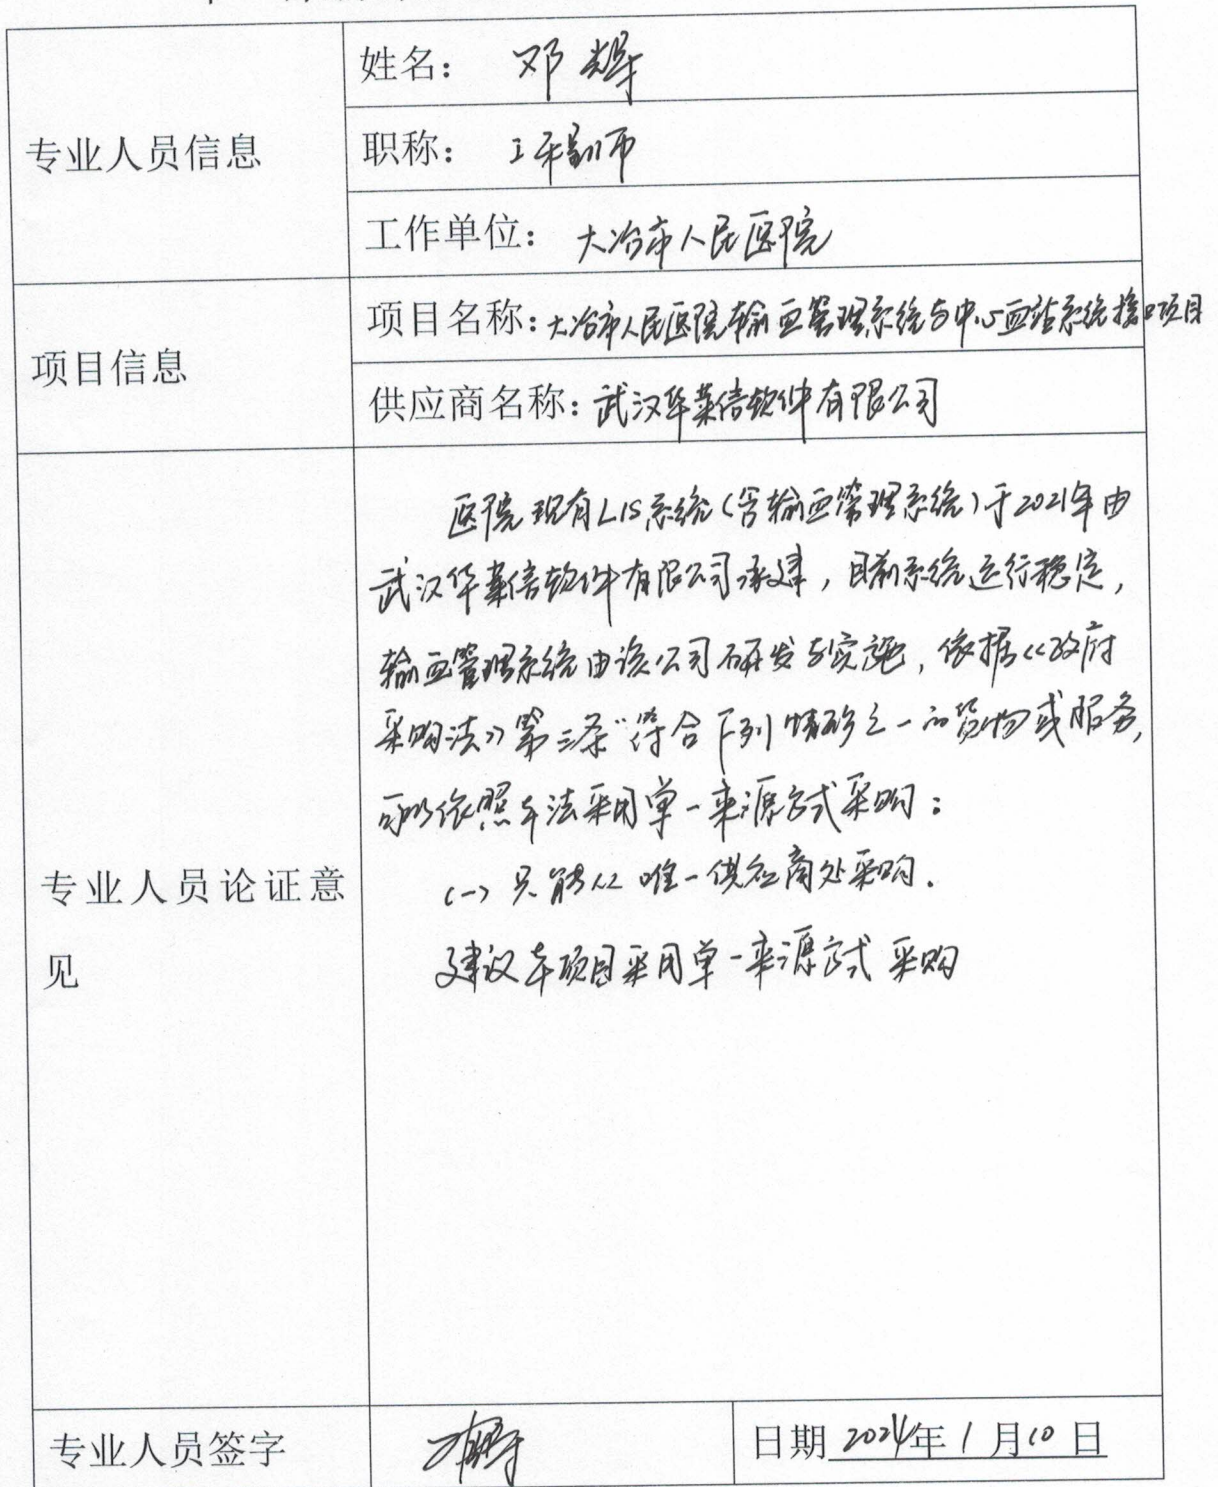 专业人员信息
姓名： 邓辉
职称： 工程师
工作单位： 大冶市人民医院
项目信息
项目名称：大冶市人民医院输血管理系统与中心血站系统接口项目
供应商名称：武汉华莱信软件有限公司
专业人员论证意
见
医院现有LIS系统(含输血管理系统)于2021年由
武汉华莱信软件有限公司承建，目前系统运行稳定，
输血管理系统由该公司研发与实施，依据《政府
采购法》第三条“符合下列情形之一的货物或服务，
可以依照本法采用单一来源方式采购：
(一)只能从唯一供应商处采购.
建议本项目采用单一来源方式采购
专业人员签字
日期 2024年1月10日